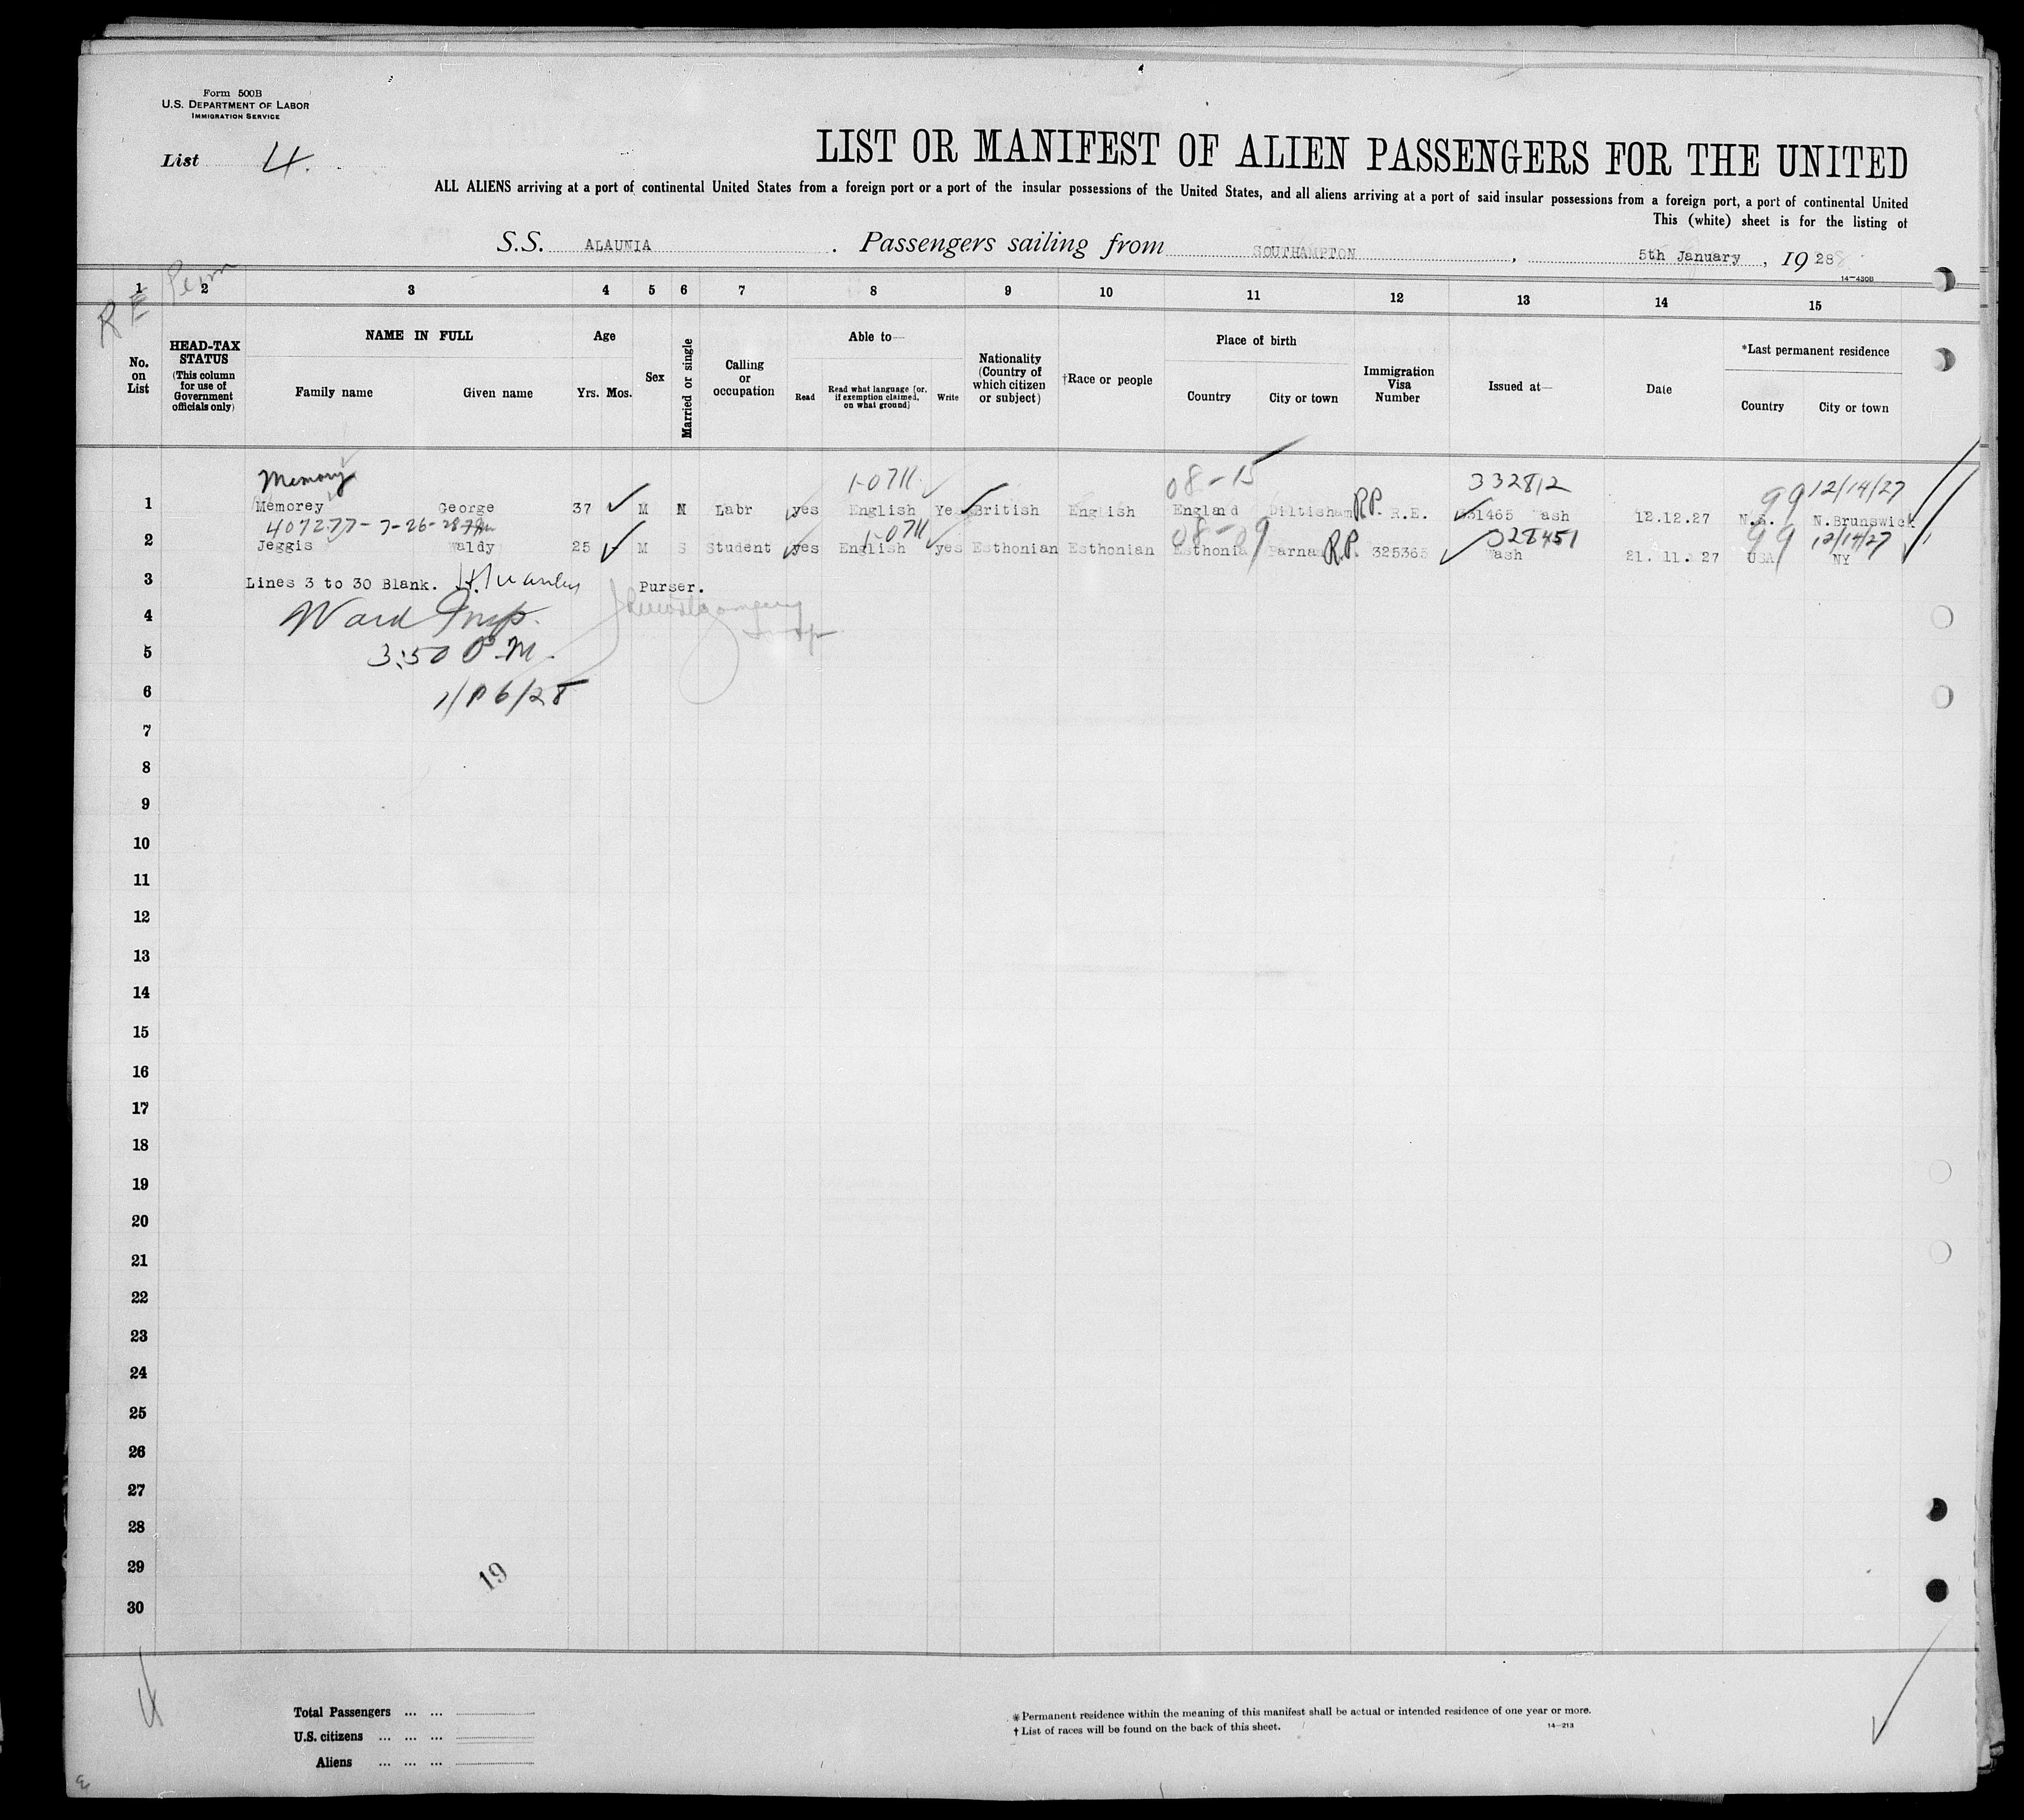 Form 500B
U.S. DEPARTMENT OF LABOR
IMMIGRATION SERVICE
List 4.
LIST OR MANIFEST OF ALIEN PASSENGERS FOR THE UNITED
ALL ALIENS arriving at a port of continental United States from a foreign port or a port of the insular possessions of the United States, and all aliens arriving at a port of said insular possessions from a foreign port, a port of continental United
This (white) sheet is for the listing of
S.S. ALAUNIA . Passengers sailing from SOUTHAMPTON , 5th January , 1928
14-430B
R E Perm
1 2 3 4 5 6 7 8 9 10 11 12 13 14 15
No. on List
HEAD-TAX STATUS (This column for use of Government officials only)
NAME IN FULL
Family name Given name
Age
Yrs. Mos.
Sex
Married or single
Calling or occupation
Able to—
Read Read what language [or, if exemption claimed, on what ground] Write
Nationality (Country of which citizen or subject)
†Race or people
Place of birth
Country City or town
Immigration Visa Number
Issued at—
Date
*Last permanent residence
Country City or town
Memory 1-0711 08-15 332812 99 12/14/27
1 Memorey George 37 M Labr yes English Yes British English England R.P. R.E. 331465 Wash 12.12.27 N.Brunswick
407277-7-26-28 1-0711 08-09 328451 99 12/14/27
2 Jeggis Waldy 25 M S Student yes English yes Esthonian Esthonian Esthonia Parnau R.P. 325365 Wash 21.11.27 USA NY
3 Lines 3 to 30 Blank. Purser.
4 Ward Insp.
5 3:50 P.M.
6
7
8
9
10
11
12
13
14
15
16
17
18
19
20
21
22
23
24
25
26
27
28
29
30
19
Total Passengers ... ...
U.S. citizens ... ... ...
Aliens ... ... ...
* Permanent residence within the meaning of this manifest shall be actual or intended residence of one year or more.
† List of races will be found on the back of this sheet. 14-213